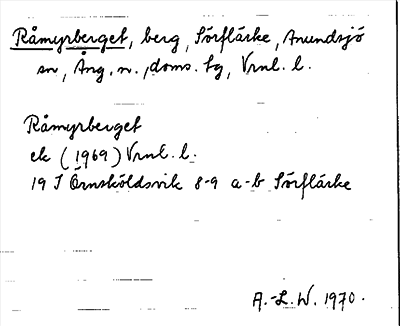 Råmyrberget, berg, Sörflärke, Anundsjö
sn, Ång. n., doms. tg, Vrnl. l.
Råmyrberget
ek (1969) Vrnl. l.
19 J Örnsköldsvik 8-9 a-b Sörflärke
A.-L. W. 1970.